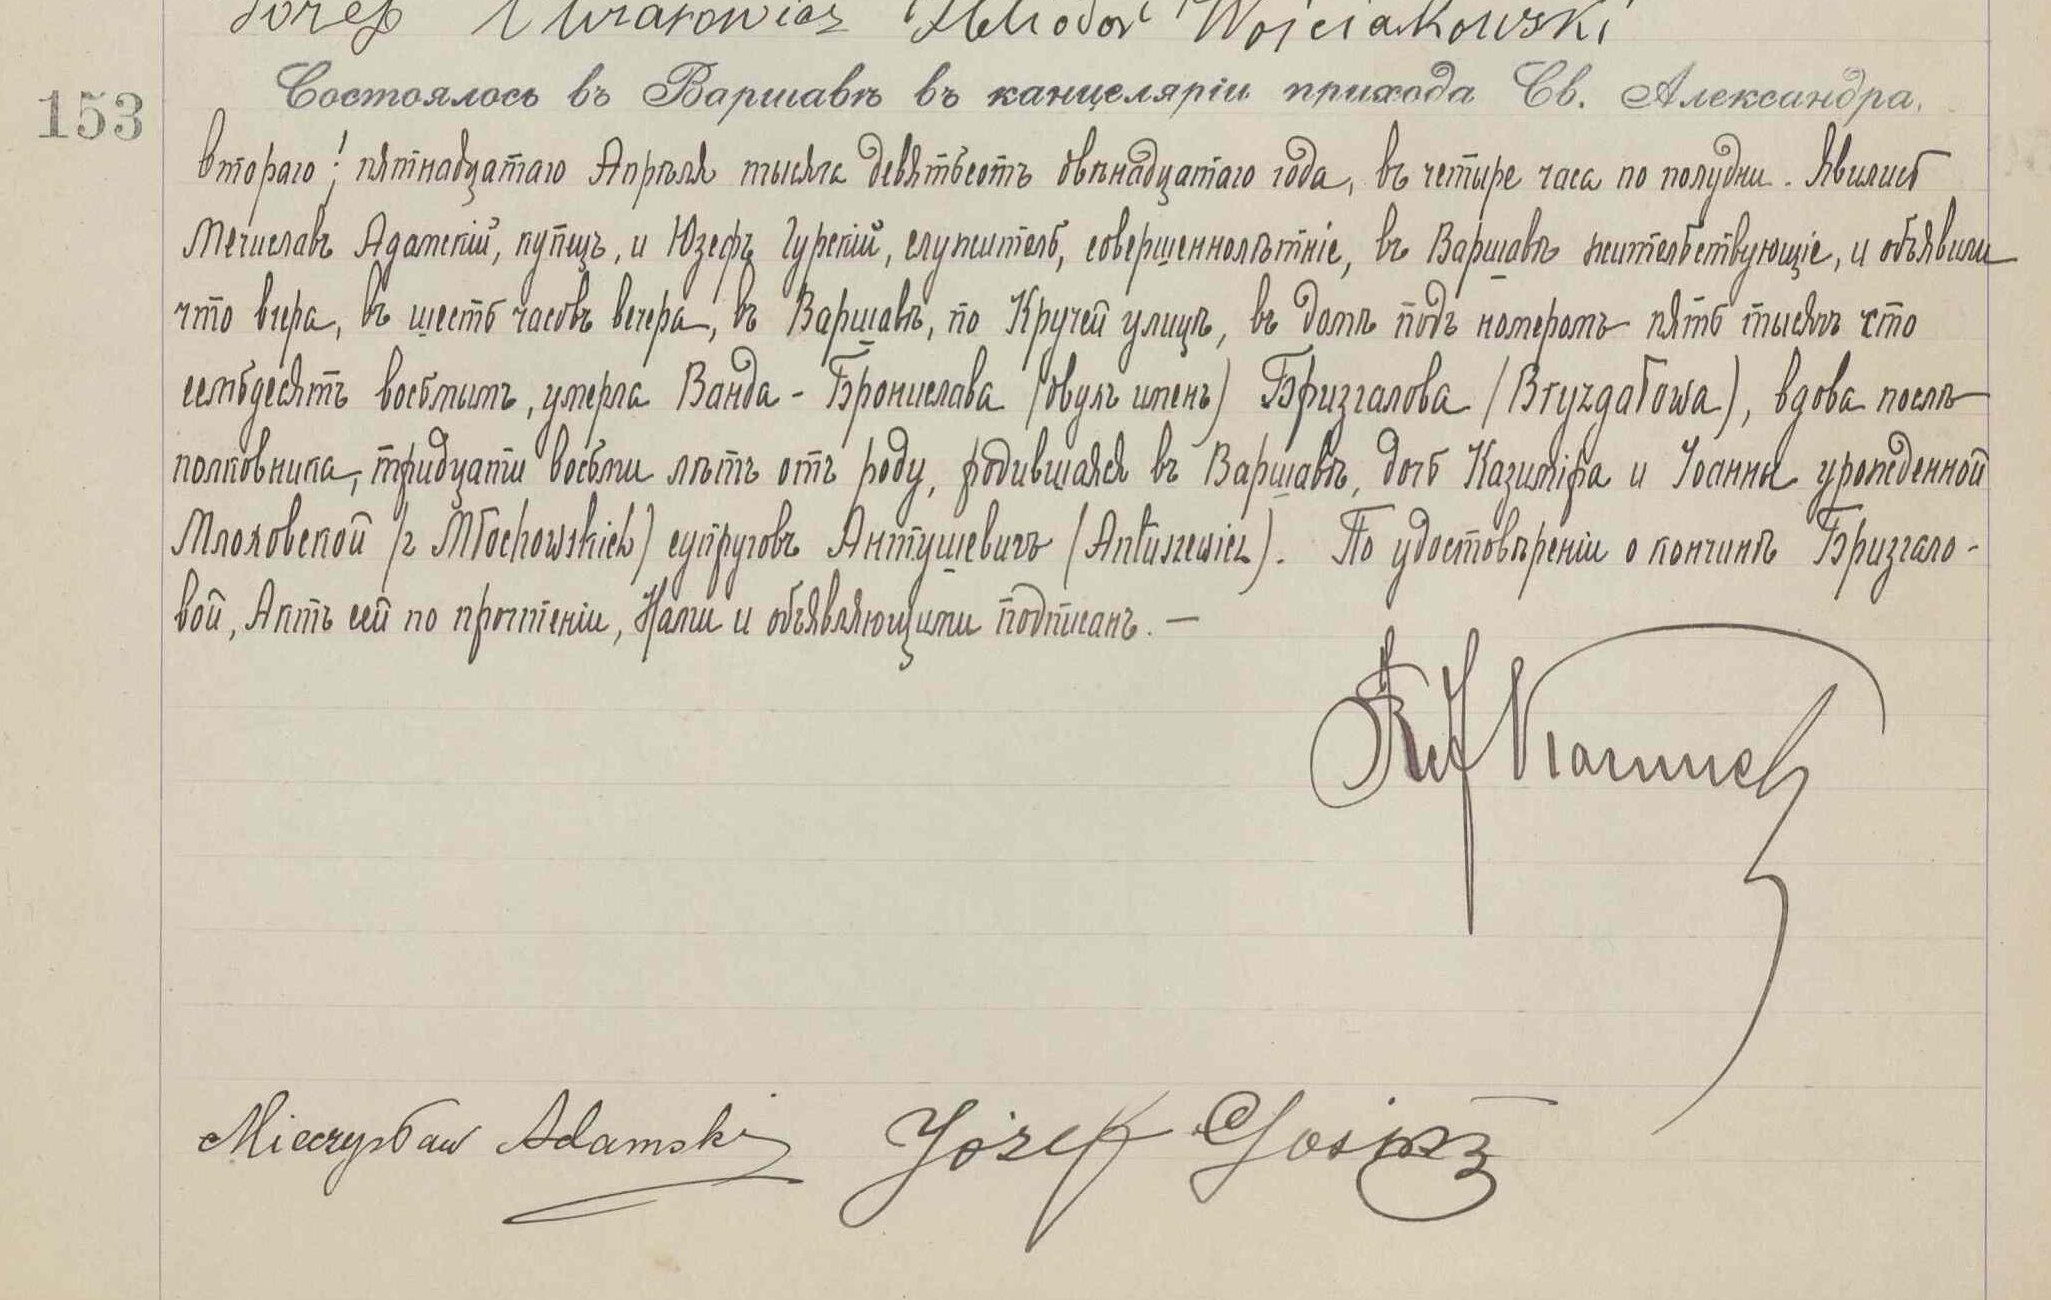 Józef Heliodor Wojciakowski
Состоялось въ Варшавѣ въ канцеляріи прихода Св. Александра,
153
втораго / пятнадцатаго Апрѣля тысяча девятьсотъ двѣнадцатаго года, въ четыре часа по полудни. Явились
Мечиславъ Адамскій, купецъ, и Юзефъ Гурскій, служитель, совершеннолѣтніе, въ Варшавѣ жительствующіе, и объявили
что вчера, въ шесть часовъ вечера, въ Варшавѣ, по Кручей улицѣ, въ домѣ подъ номеромъ пять тысячъ сто
семьдесятъ восьмымъ, умерла Ванда - Бронислава (двухъ именъ) Бризгалова (Bryzgałowa), вдова послѣ
полковника, тридцати восьми лѣтъ отъ роду, родившаяся въ Варшавѣ, дочь Казиміра и Іоанны урожденной
Млоховской (z Młochowskich) супруговъ Антушевичъ (Antuszewicz). По удостовѣреніи о кончинѣ Бризгало-
вой, Актъ сей по прочтеніи, Нами и объявляющими подписанъ. —
Mieczysław Adamski Józef